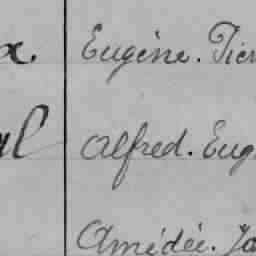 x. Eugène. Pier
al Alfred. Eug
Amédée. Ja